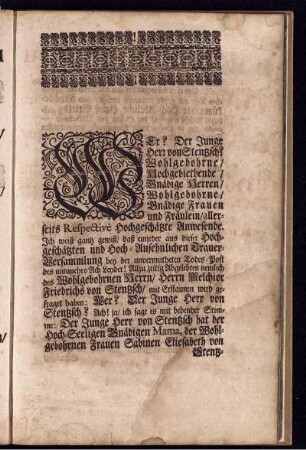 WEr? Der Junge
Herr von Stentzsch?
Wohlgebohrne/
Hochgebiethende/
Gnädige Herren/
Wohlgebohrne/
Gnädige Frauen
und Fräulein/aller-
seits Respective Hochgeschätzte Anwesende.
Ich weiß gantz gewiß/daß ein jeder aus dieser Hoch-
geschätzten und Hoch-Ansehnlichen Trauer-
Versammlung bey der unvermutheten Todes-Post
des nunmehro Ach Leyder! Allzu zeitig Abgeleben nemlich
des Wohlgebohrnen Herrn/ Herrn Melchior
Friedrichs von Stentzsch/ mit Erstaunen wird ge-
fraget haben: Wer? Der Junge Herr von
Stentzsch? Ach! ja/ ich sage es mit bebender Stim-
me: Der Junge Herr von Stentzsch hat der
Hoch-Seeligen Gnädigen Mama, der Wohl-
gebohrnen Frauen Sabinen Eliesabeth von
Stentz-